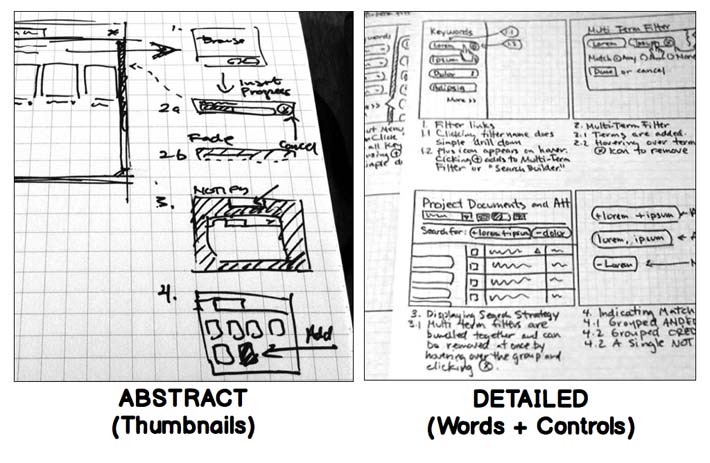 1.
Browse
Insert
Progress
2a
Cancel
Fade
2b
3.
NOTIFY
4.
Add
ABSTRACT
(Thumbnails)
Keywords
1.1
Lorem
1.2
Ipsum
Dolor
Adipsin
More >>
1. Filter links
1.1 Clicking filter name does
simple drill down
1.2 Plus icon appears on hover.
Clicking + adds to Multi-Term
Filter or "Search Builder."
Multi Term Filter
Lorem Ipsum
Match Any All More
Done or cancel
2. Multi-Term Filter
2.1 Terms are added.
2.2 Hovering over term
X icon to remove
Project Documents and Att
Search for: +lorem +ipsum -dolor
3. Displaying Search Strategy
3.1 Multi term filters are
bundled together and can
be removed at once by
hovering over the group and
clicking X.
+lorem +ipsum
lorem, ipsum
-Lorem
4. Indicating Match
4.1 Grouped ANDED
4.2 Grouped ORED
4.2 A Single NOT
DETAILED
(Words + Controls)